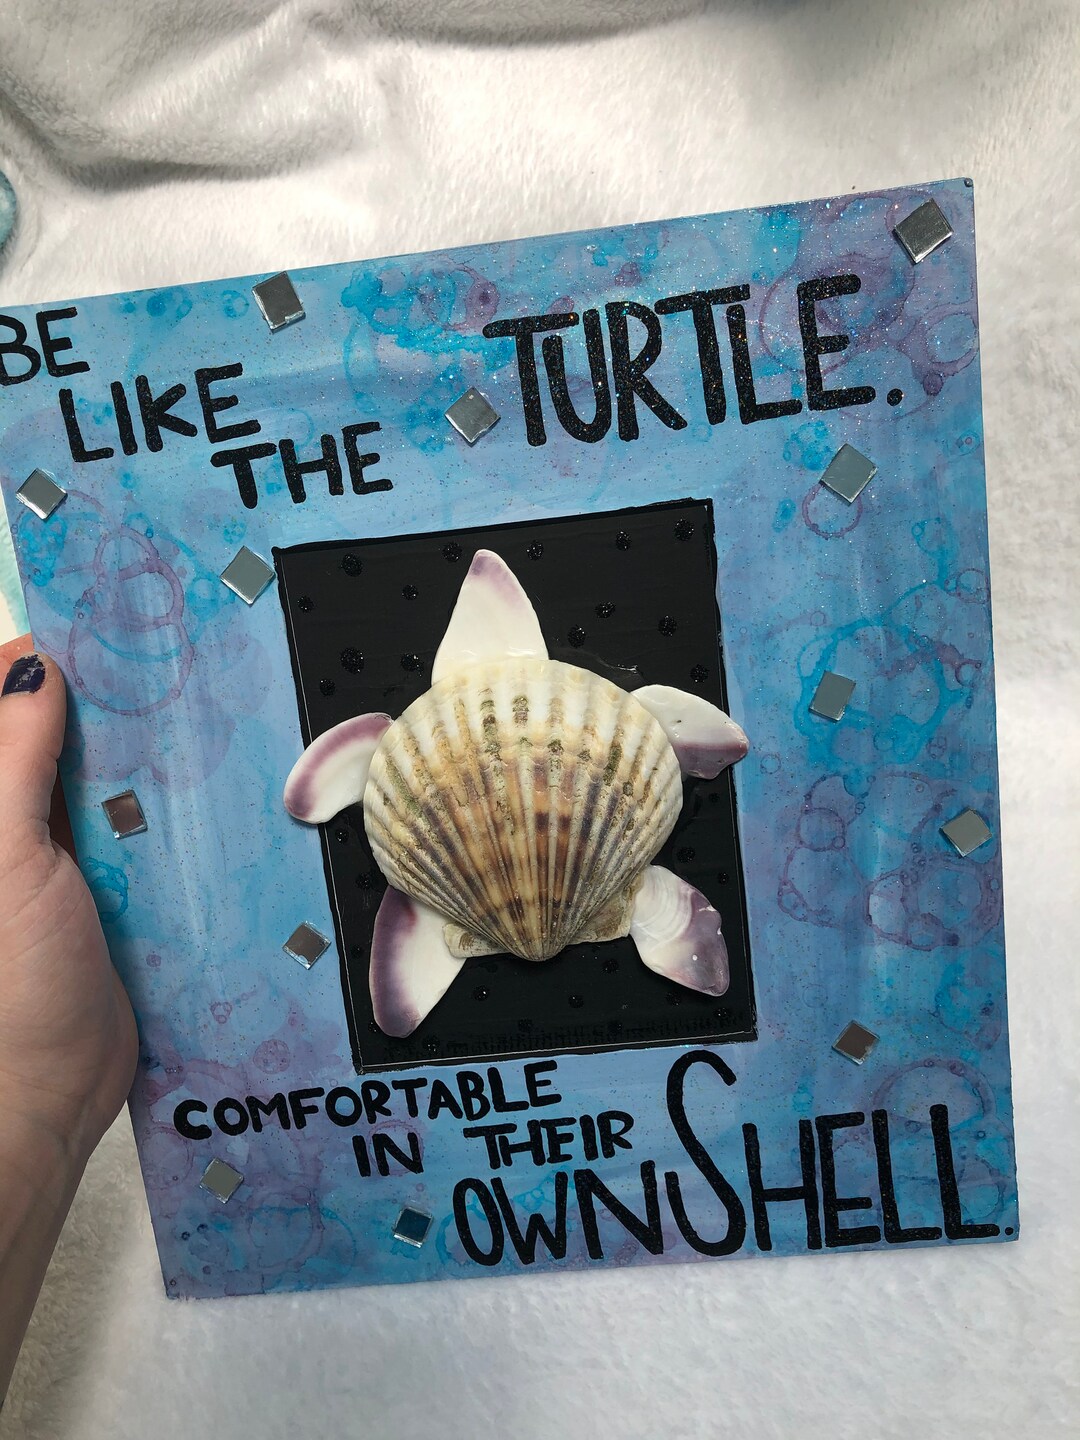 BE
LIKE
THE
TURTLE.
COMFORTABLE
IN THEIR
OWN SHELL.